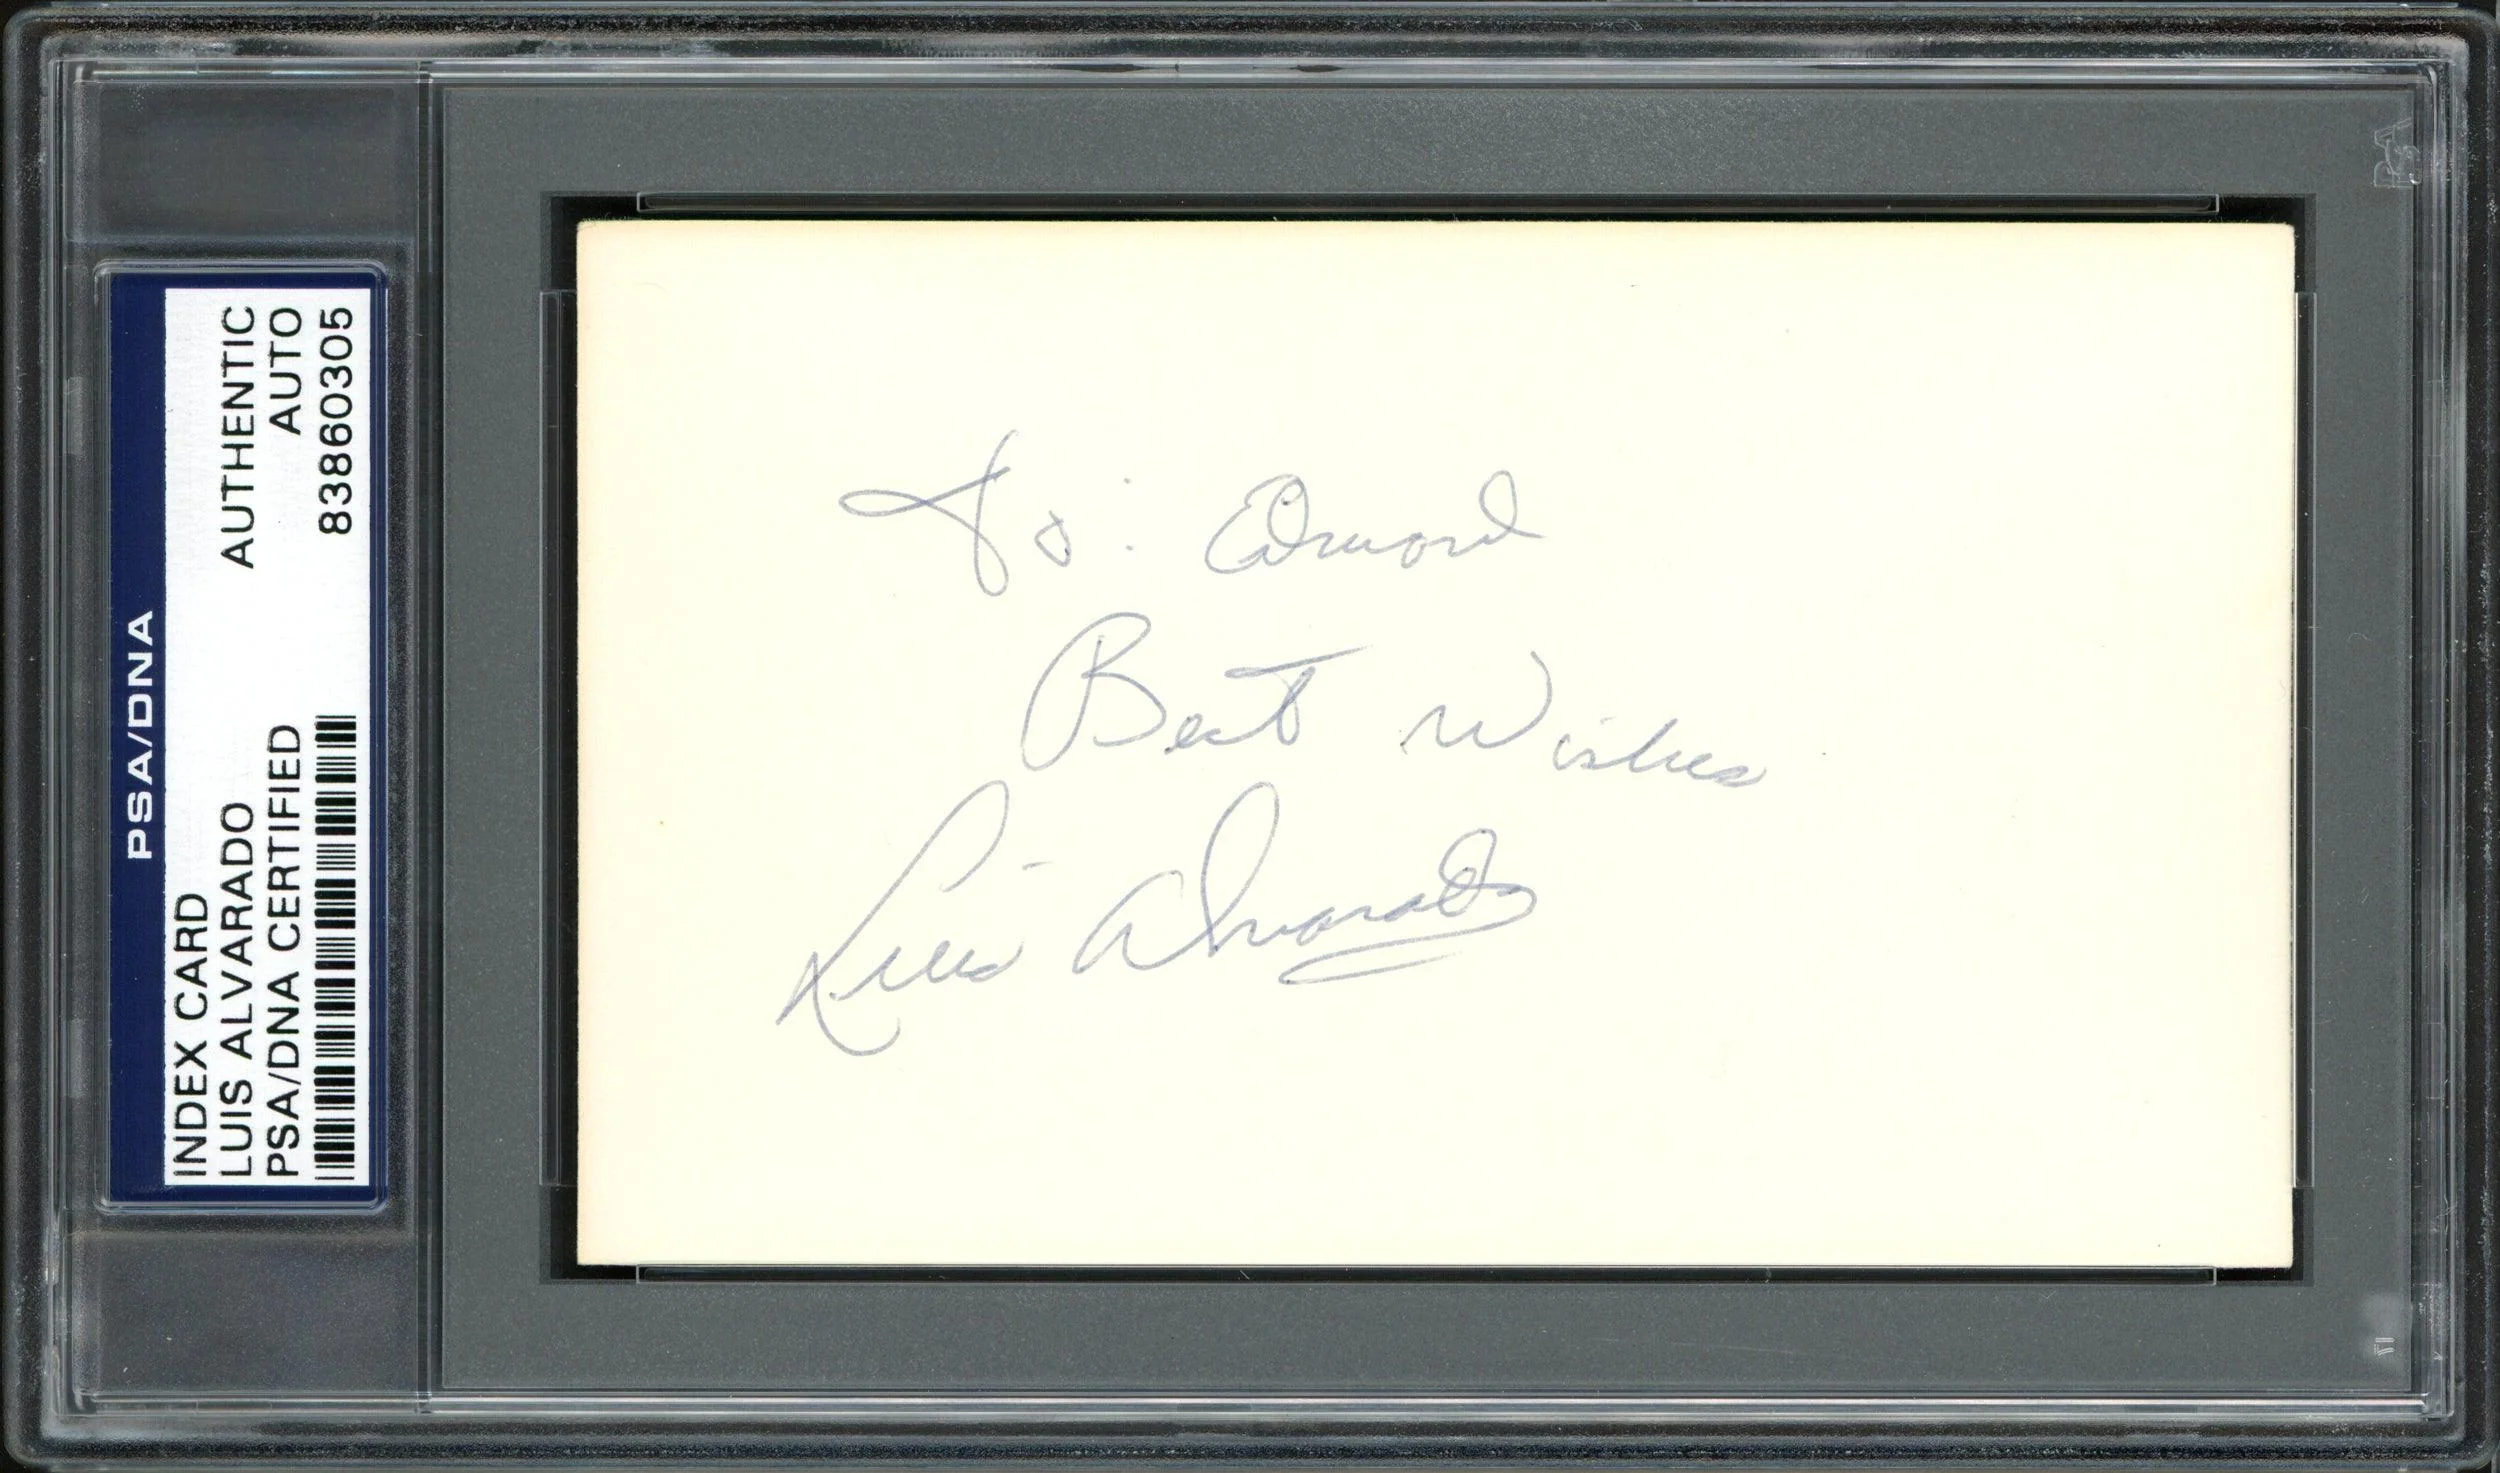 PSA/DNA
INDEX CARD AUTHENTIC
LUIS ALVARADO AUTO
PSA/DNA CERTIFIED 83860305
To: Edmond
Best Wishes
Luis Alvarado
PSA